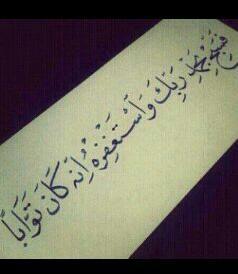 فَسَبِّحْ بِحَمْدِ رَبِّكَ وَاسْتَغْفِرْهُ إِنَّهُ كَانَ تَوَّابًا